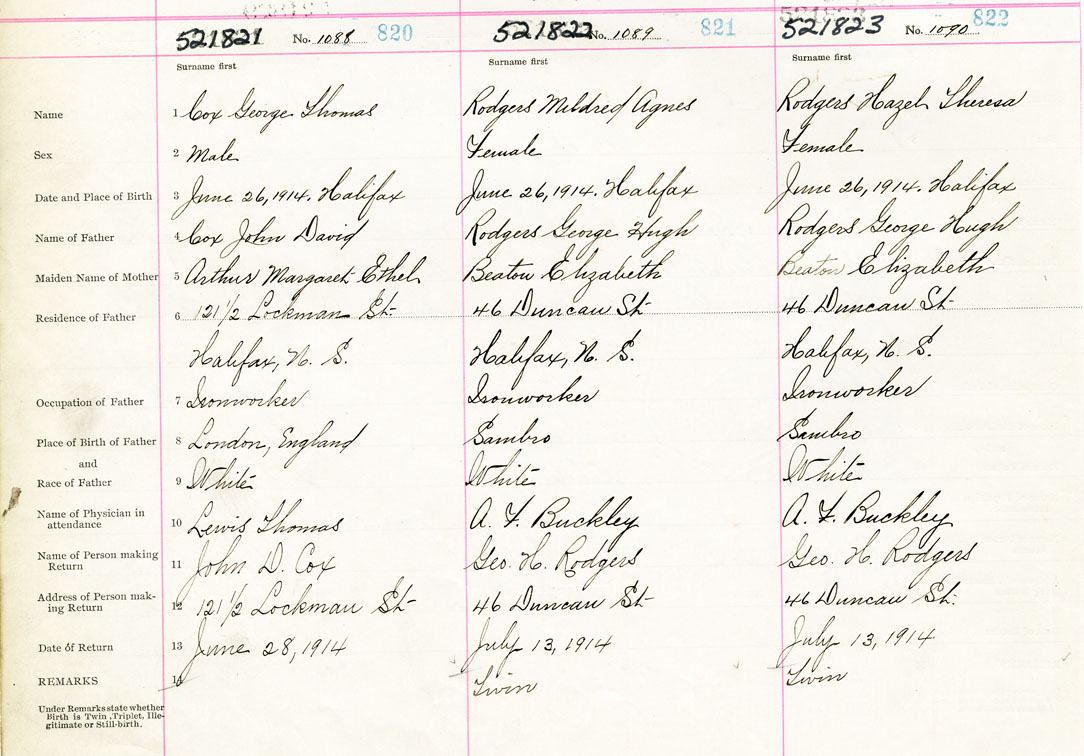 521821 No. 1088 820 521822 No. 1089 821 521823 No. 1090 822
Surname first Surname first Surname first
Name 1 Cox George Thomas Rodgers Mildred Agnes Rodgers Hazel Theresa
Sex 2 Male Female Female
Date and Place of Birth 3 June 26, 1914. Halifax June 26, 1914. Halifax June 26, 1914. Halifax
Name of Father 4 Cox John David Rodgers George Hugh Rodgers George Hugh
Maiden Name of Mother 5 Arthur Margaret Ethel Beaton Elizabeth Beaton Elizabeth
Residence of Father 6 121 1/2 Lockman St. 46 Duncan St. 46 Duncan St.
Halifax, N. S. Halifax, N. S. Halifax, N. S.
Occupation of Father 7 Ironworker Ironworker Ironworker
Place of Birth of Father 8 London, England Sambro Sambro
and
Race of Father 9 White White White
Name of Physician in
attendance 10 Lewis Thomas A. F. Buckley A. F. Buckley
Name of Person making
Return 11 John D. Cox Geo. H. Rodgers Geo. H. Rodgers
Address of Person mak-
ing Return 12 121 1/2 Lockman St. 46 Duncan St. 46 Duncan St.
Date of Return 13 June 28, 1914 July 13, 1914 July 13, 1914
REMARKS 14 Twin Twin
Under Remarks state whether
Birth is Twin, Triplet, Ille-
gitimate or Still-birth.